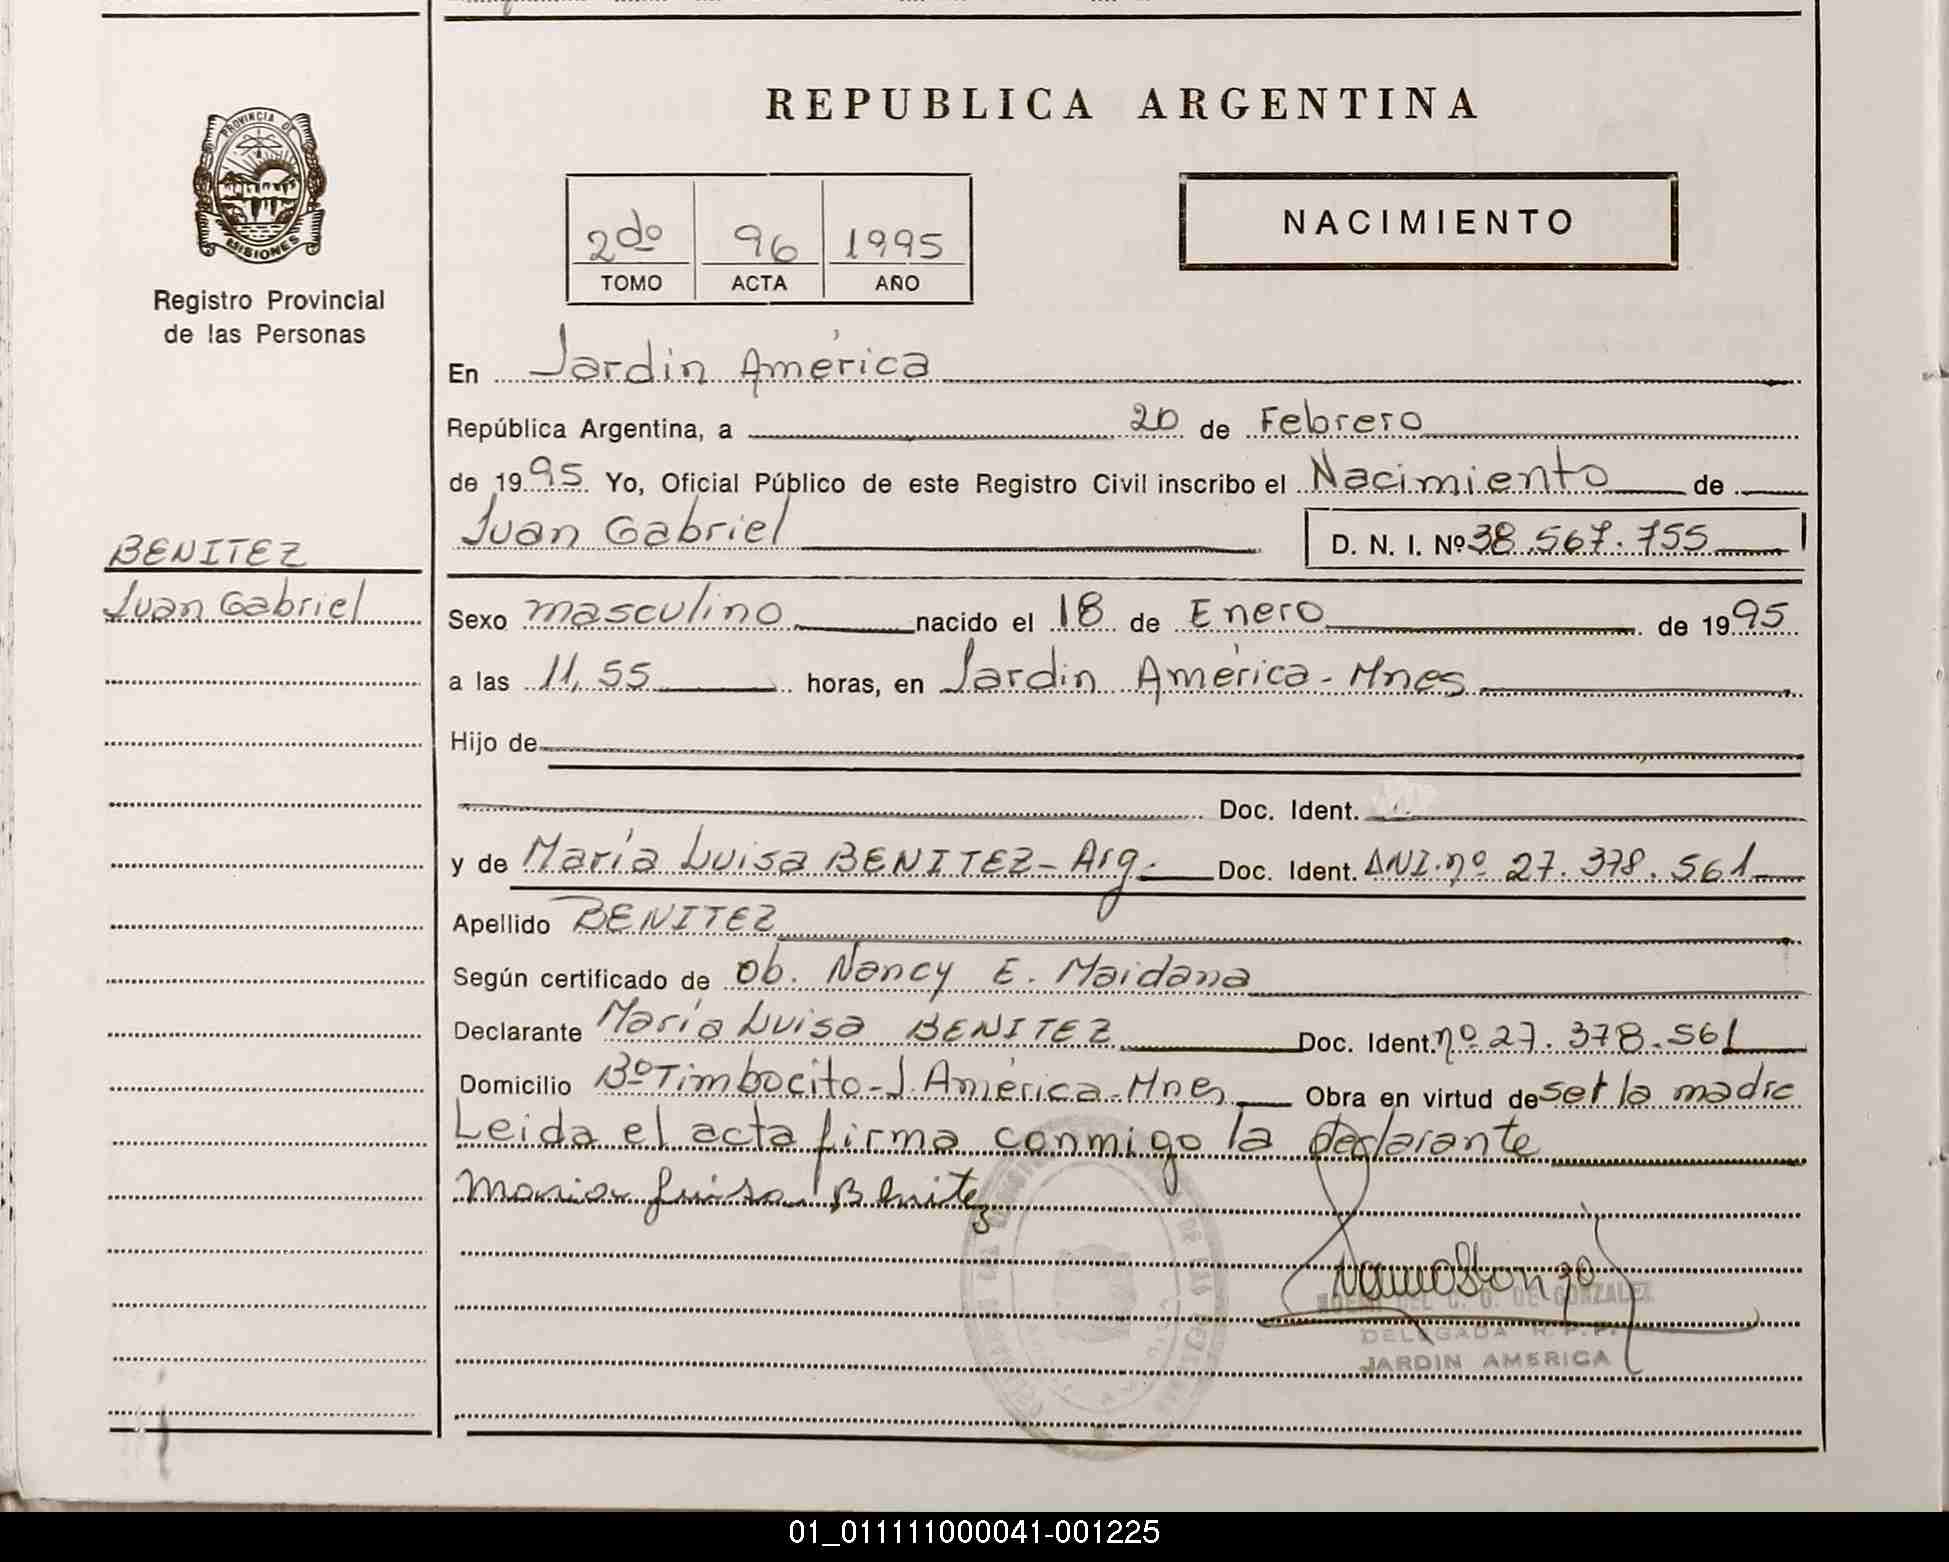 REPUBLICA ARGENTINA
PROVINCIA DE
MISIONES
Registro Provincial
de las Personas
2do 96 1995
TOMO ACTA AÑO
NACIMIENTO
BENITEZ
Juan Gabriel
En Jardin América
República Argentina, a 20 de Febrero
de 1995 Yo, Oficial Público de este Registro Civil inscribo el Nacimiento de
Juan Gabriel D. N. I. Nº 38.567.755
Sexo masculino nacido el 18 de Enero de 1995
a las 11,55 horas, en Jardin América - Mnes
Hijo de
Doc. Ident.
y de María Luisa BENITEZ - Arg. Doc. Ident. DNI. nº 27.378.561
Apellido BENITEZ
Según certificado de Ob. Nancy E. Maidana
Declarante María Luisa BENITEZ Doc. Ident. nº 27.378.561
Domicilio Bº Timbocito - J. América - Mnes Obra en virtud de ser la madre
Leida el acta firma conmigo la declarante
Maria Luisa Benitez
DE GONZALEZ
DELEGADA R.P.P.
JARDIN AMERICA
01_011111000041-001225